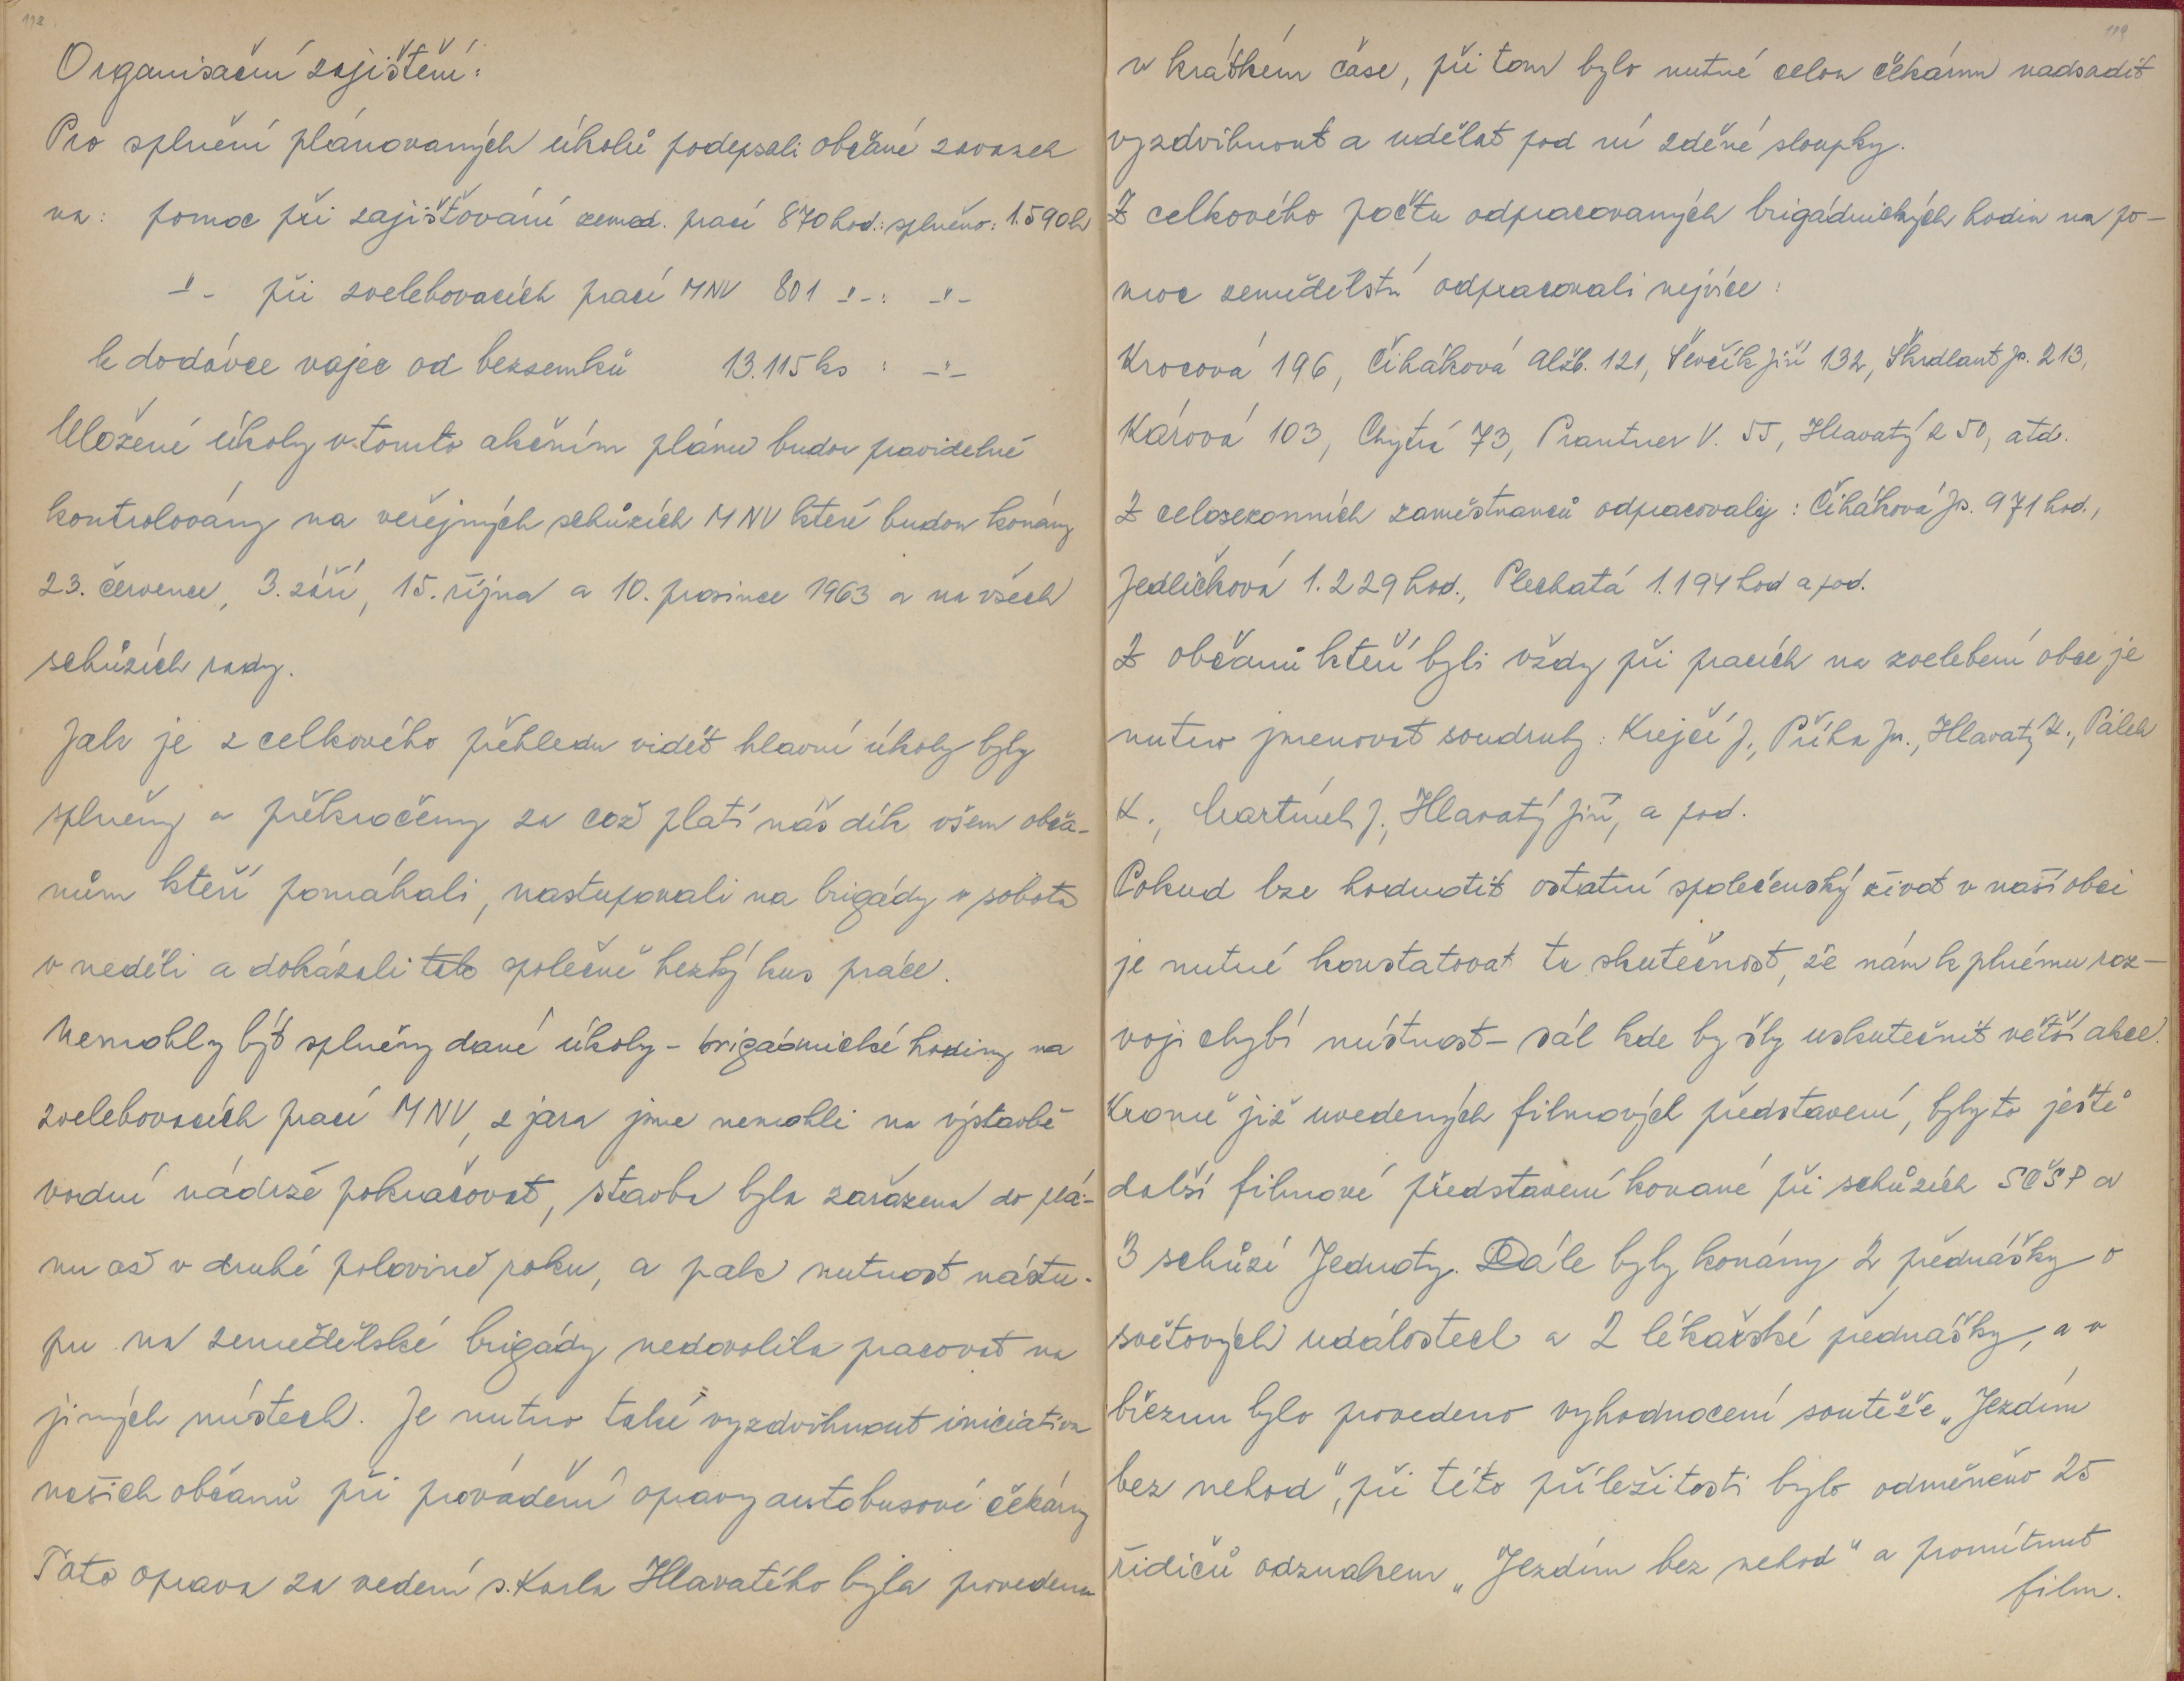 118
Organisační zajištění:
Pro splnění plánovaných úkolů podepsali občané závazek
na: pomoc při zajišťování zeměd. prací 870 hod.: splněno: 1.590 h
-"- při zvelebovacích prací MNV 801 -"-: -"-
k dodávce vajec od bezzemků 13.115 ks : -"-
Uložené úkoly v tomto akčním plánu budou pravidelně
kontrolovány na veřejných schůzích MNV které budou konány
23. července, 3. září, 15. října a 10. prosince 1963 a na všech
schůzích rady.
Jak je z celkového přehledu vidět hlavní úkoly byly
splněny a překročeny za což platí náš dík všem obča-
nům kteří pomáhali, nastupovali na brigády v sobotu
v neděli a dokázali tak společně hezký kus práce.
Nemohly být splněny dané úkoly - brigádnické hodiny na
zvelebovacích prací MNV, z jara jsme nemohli na výstavbě
vodní nádrže pokračovat, stavba byla zařazena do plá-
nu až v druhé polovině roku, a pak nutnost nástu-
pu na zemědělské brigády nedovolila pracovat na
jiných místech. Je nutno také vyzdvihnout iniciativu
našich občanů při provádění opravy autobusové čekárny
Tato oprava za vedení s. Karla Hlavatého byla provedena
119
v krátkém čase, při tom bylo nutné celou čekárnu nadsadit
vyzdvihnout a udělat pod ní zděné sloupky.
Z celkového počtu odpracovaných brigádnických hodin na po-
moc zemědělství odpracovali nejvíce:
Krocová 196, Čiháková Alžb. 121, Ševčík Jiří 132, Škrdlant Js. 213,
Kárová 103, Chytrá 73, Prantner V. 55, Hlavatý Z 50, atd.
Z celosezonních zaměstnanců odpracovaly: Čiháková Js. 971 hod.,
Jedličková 1.229 hod., Plechatá 1.194 hod a pod.
Z občanů kteří byli vždy při pracích na zvelebení obce je
nutno jmenovat soudruhy: Krejčí J., Příha Jn., Hlavatý K., Pálek
K., Martínek J., Hlavatý Jiří, a pod.
Pokud lze hodnotit ostatní společenský život v naší obci
je nutné konstatovat tu skutečnost, že nám k plnému roz-
voji chybí místnost - sál kde by šly uskutečnit větší akce.
Kromě již uvedených filmových představení, byly to ještě
další filmové představení konané při schůzích SČSP a
3 schůzí Jednoty. Dále byly konány 2 přednášky o
světových událostech a 2 lékařské přednášky, a v
březnu bylo provedeno vyhodnocení soutěže „Jezdím
bez nehod", při této příležitosti bylo odměněno 25
řidičů odznakem „Jezdím bez nehod" a promítnut
film.